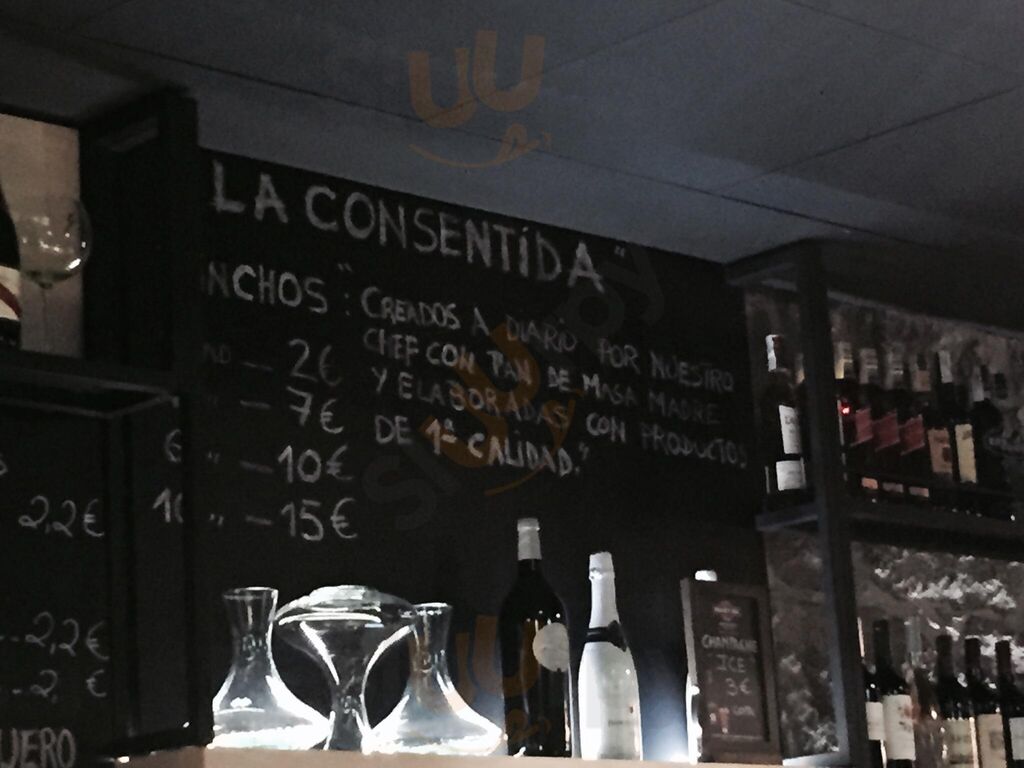 LA CONSENTIDA"
NCHOS: "CREADOS A DIARIO POR NUESTRO
CHEF CON PAN DE MASA MADRE
Y ELABORADAS CON PRODUCTOS
DE 1ª CALIDAD."
— 2€
" — 7€
6 " — 10€
10 " — 15€
2,2€
--2,2€
--2 €
UERO
CHAMPAGNE
ICE
3€